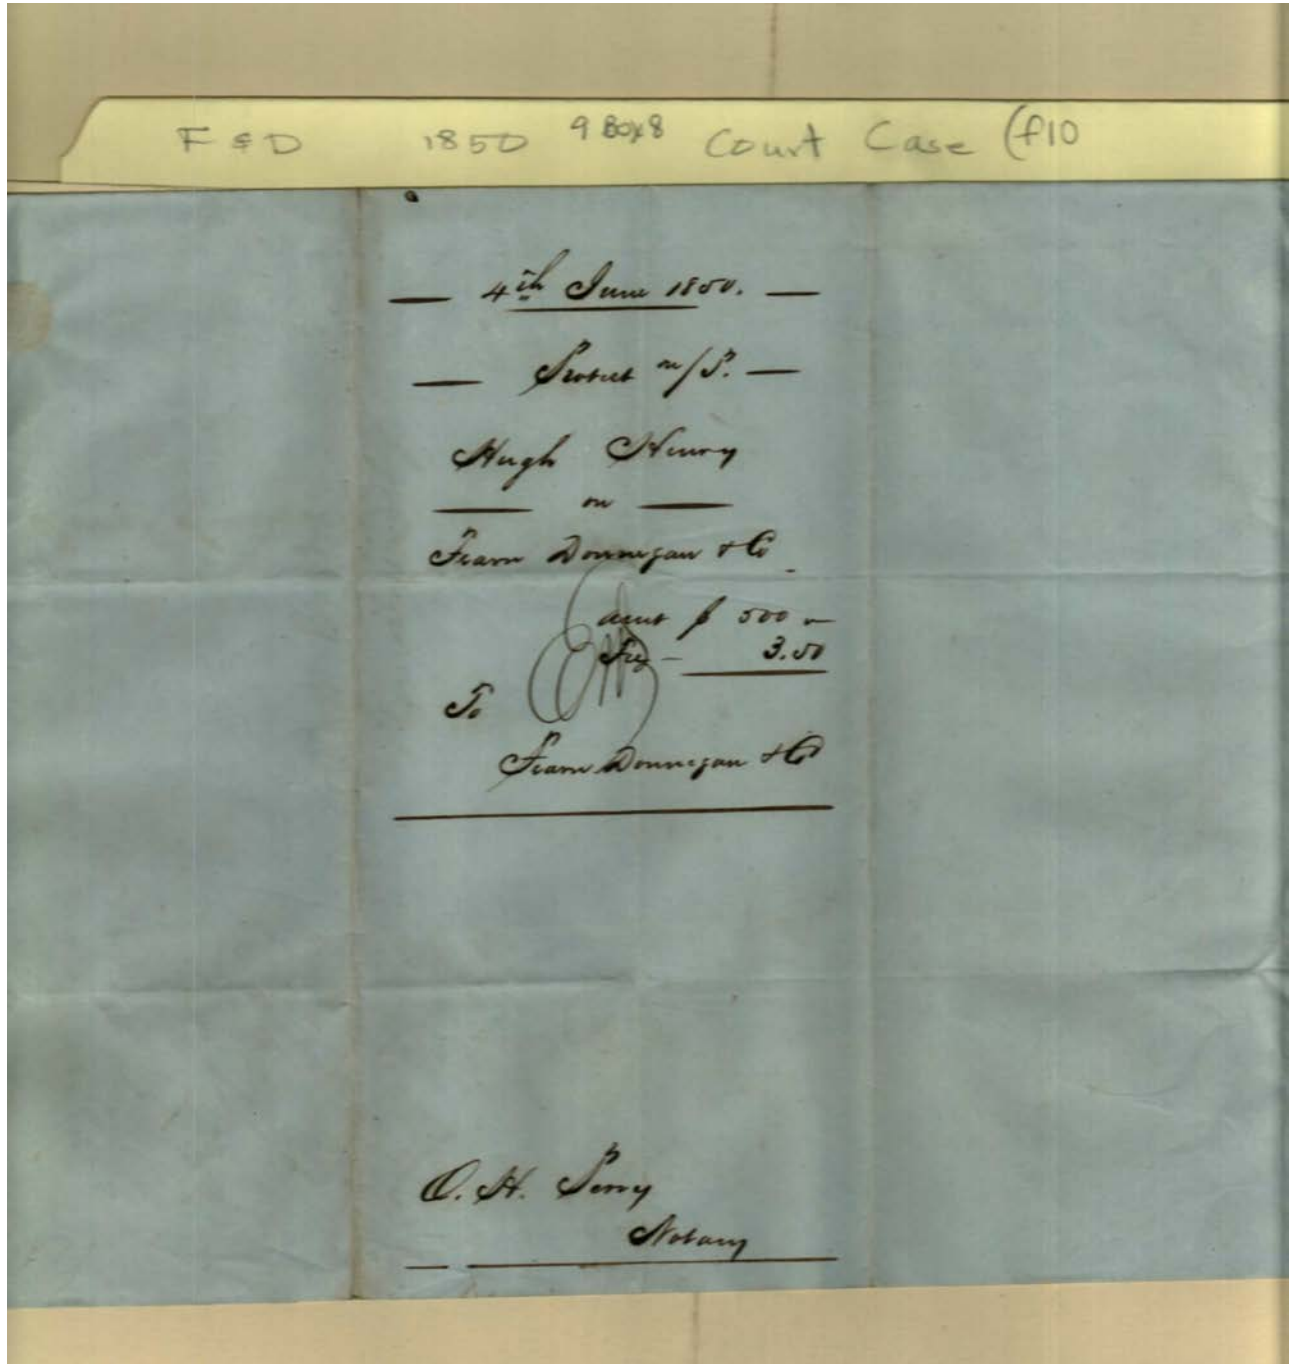 F & D 1850 9 Box 8 Court Case (f10
4th June 1850.
Protest n/P.
Hugh Henry
on
Fearn Donnegan & Co
amt $ 500 –
Fees – 3.50
To
Fearn Donnegan & Co
O. H. Perry
Notary